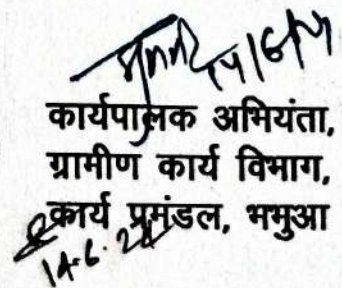 14/6/24
कार्यपालक अभियंता,
ग्रामीण कार्य विभाग,
कार्य प्रमंडल, भभुआ
14.6.24